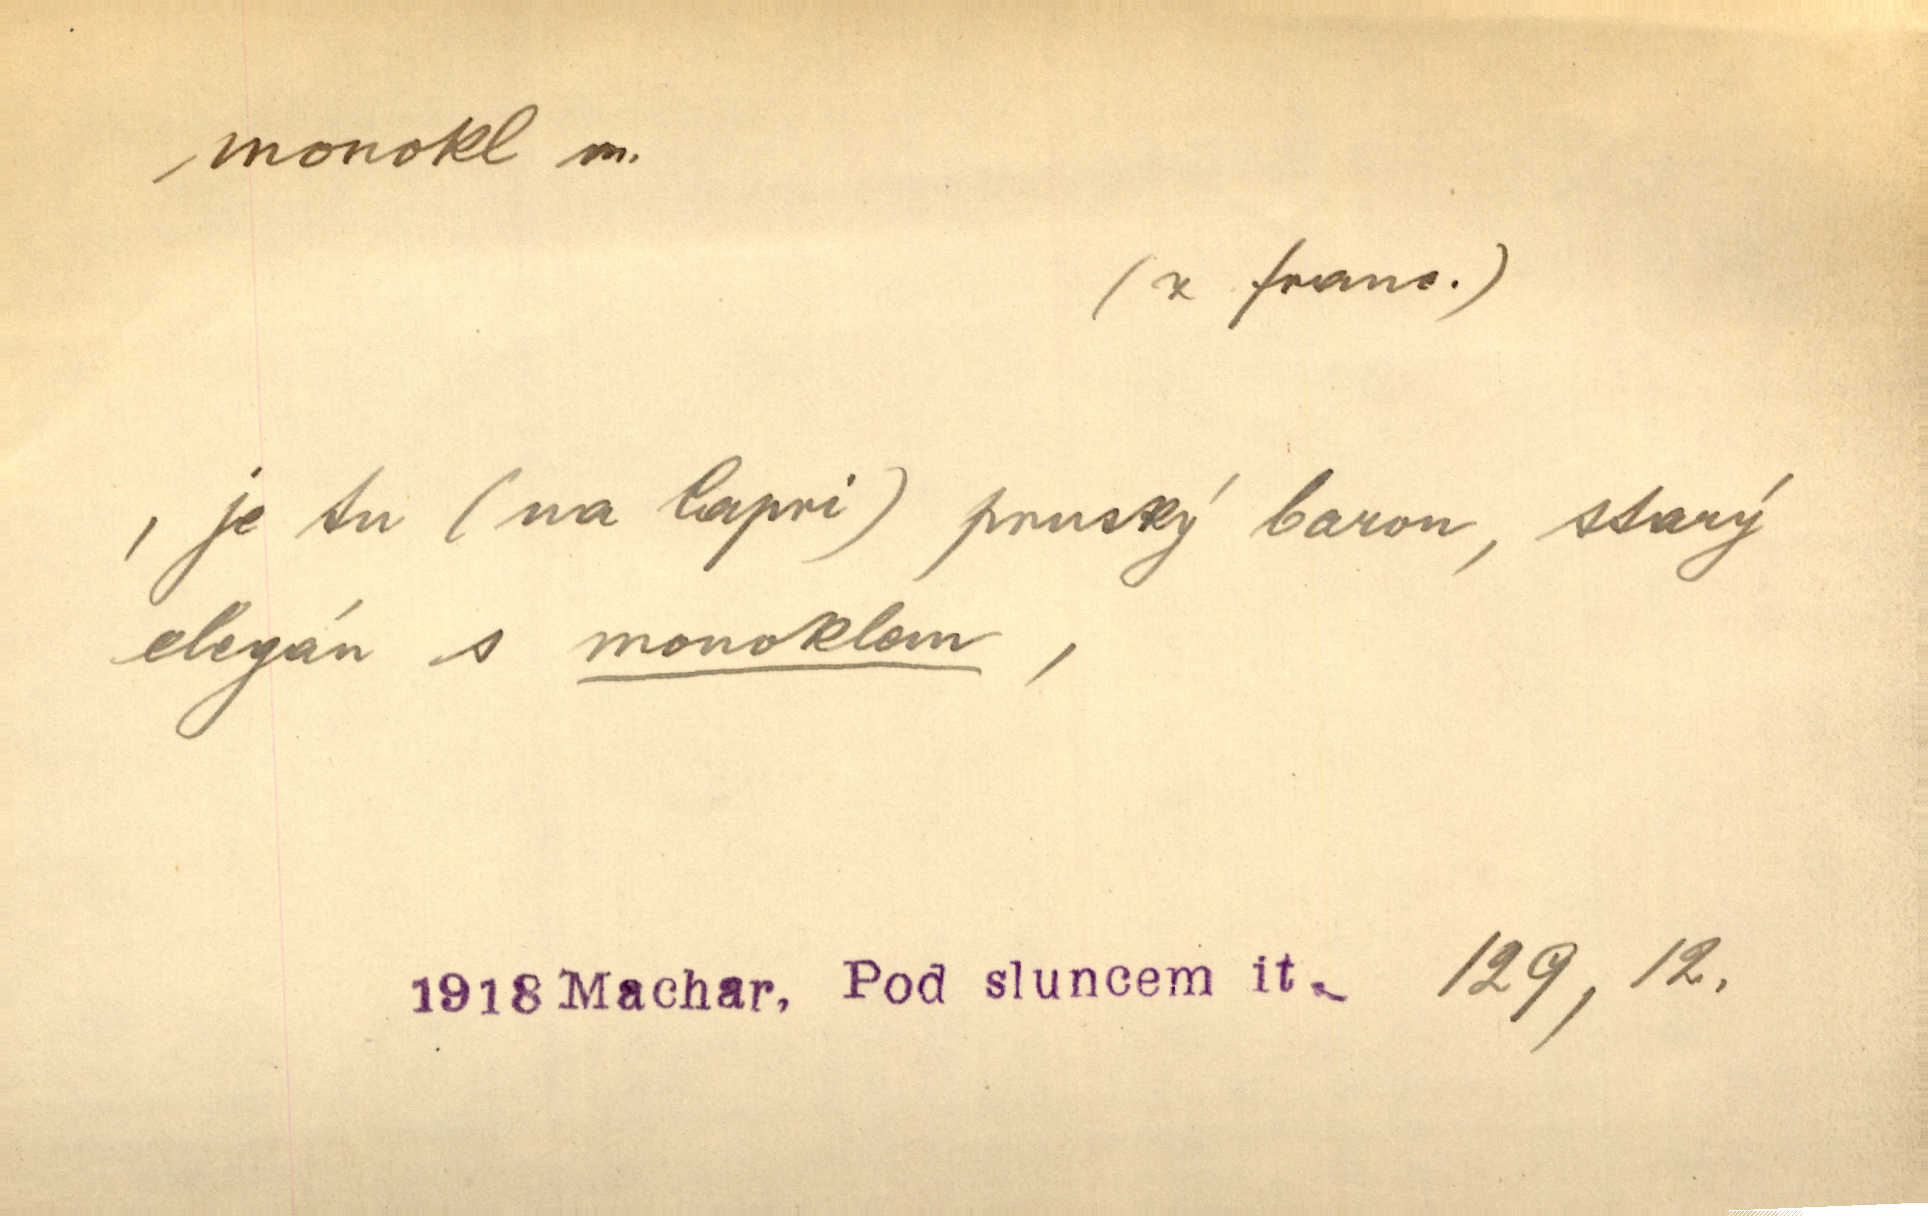 monokl m.
(z franc.)
, je tu (na Capri) pruský baron, starý
elegán s monoklem ,
1918 Machar, Pod sluncem it. 129, 12.